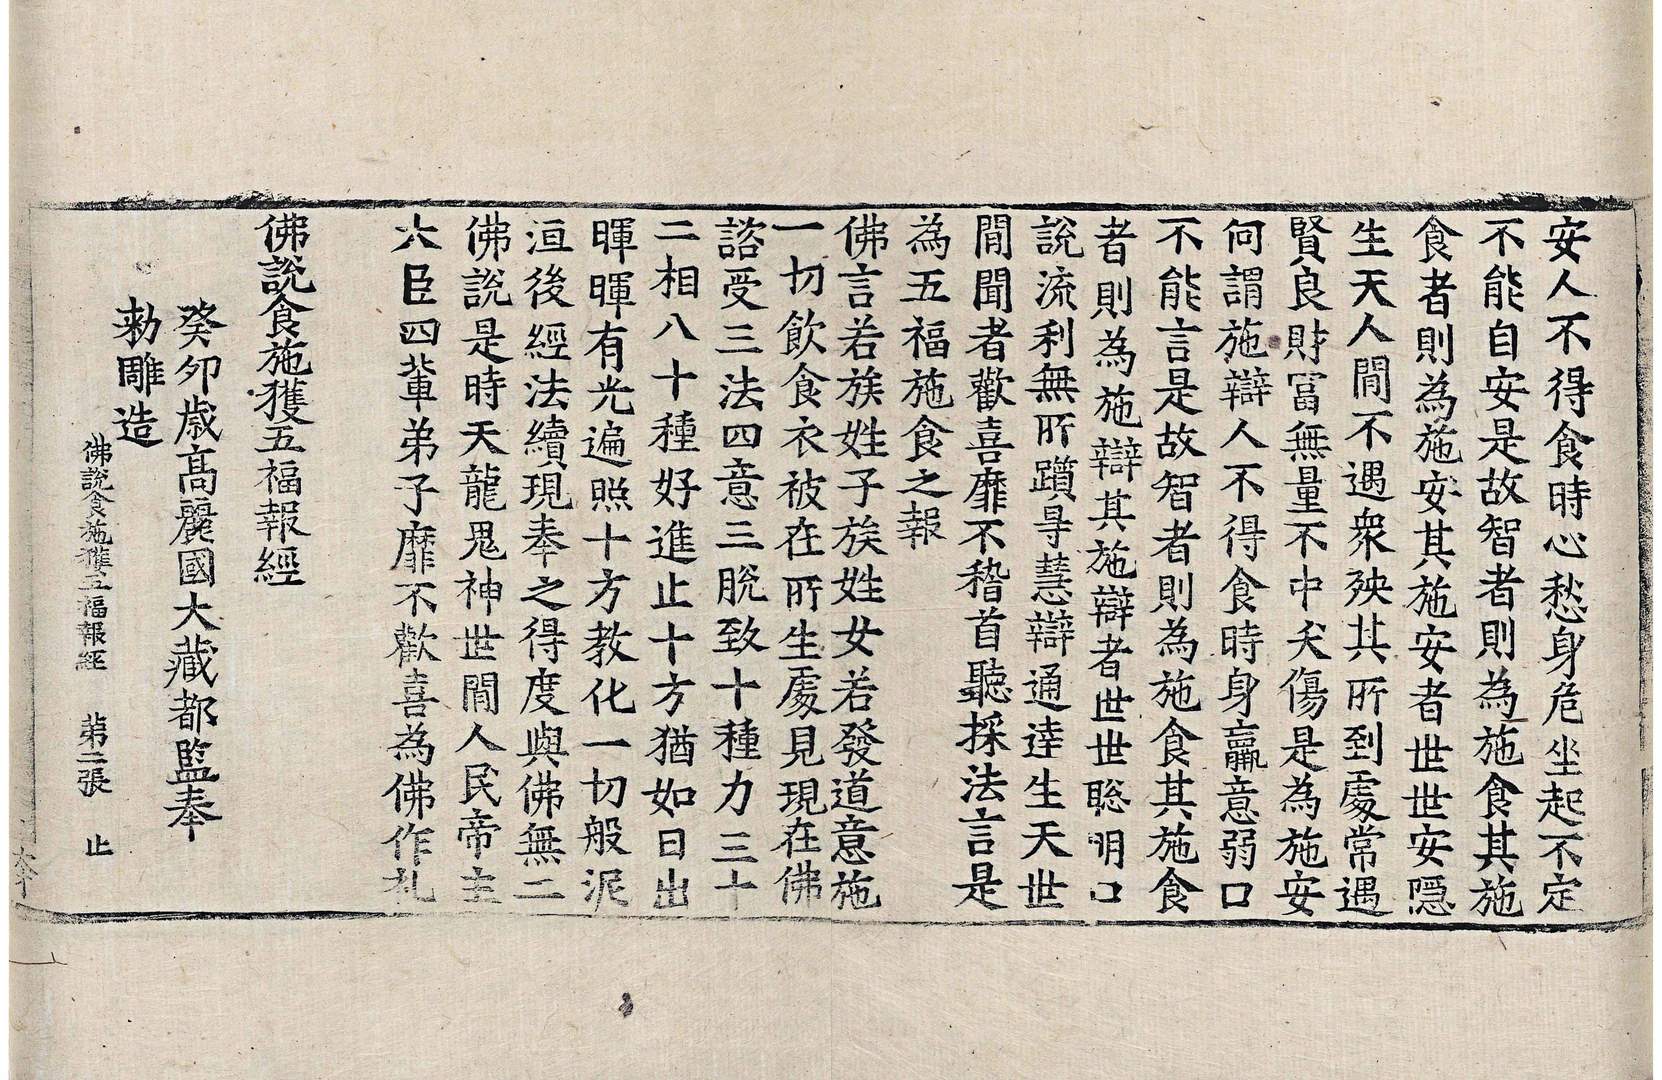 安人不得食時心愁身危坐起不定
不能自安是故智者則為施食其施
食者則為施安其施安者世世安隱
生天人閒不遇衆殃其所到處常遇
賢良財富無量不中夭傷是為施安
何謂施辯人不得食時身羸意弱口
不能言是故智者則為施食其施食
者則為施辯其施辯者世世聡明口
說流利無所躓㝵慧辯通達生天世
閒聞者歡喜靡不稽首聽採法言是
為五福施食之報
佛言若族姓子族姓女若發道意施
一切飲食衣被在所生處見現在佛
諮受三法四意三脫致十種力三十
二相八十種好進止十方猶如日出
暉暉有光遍照十方教化一切般泥
洹後經法續現奉之得度與佛無二
佛說是時天龍鬼神世閒人民帝主
大臣四輩弟子靡不歡喜為佛作礼
佛說食施獲五福報經
癸卯歲高麗國大藏都監奉
勑雕造
佛說食施獲五福報經 第二張 止